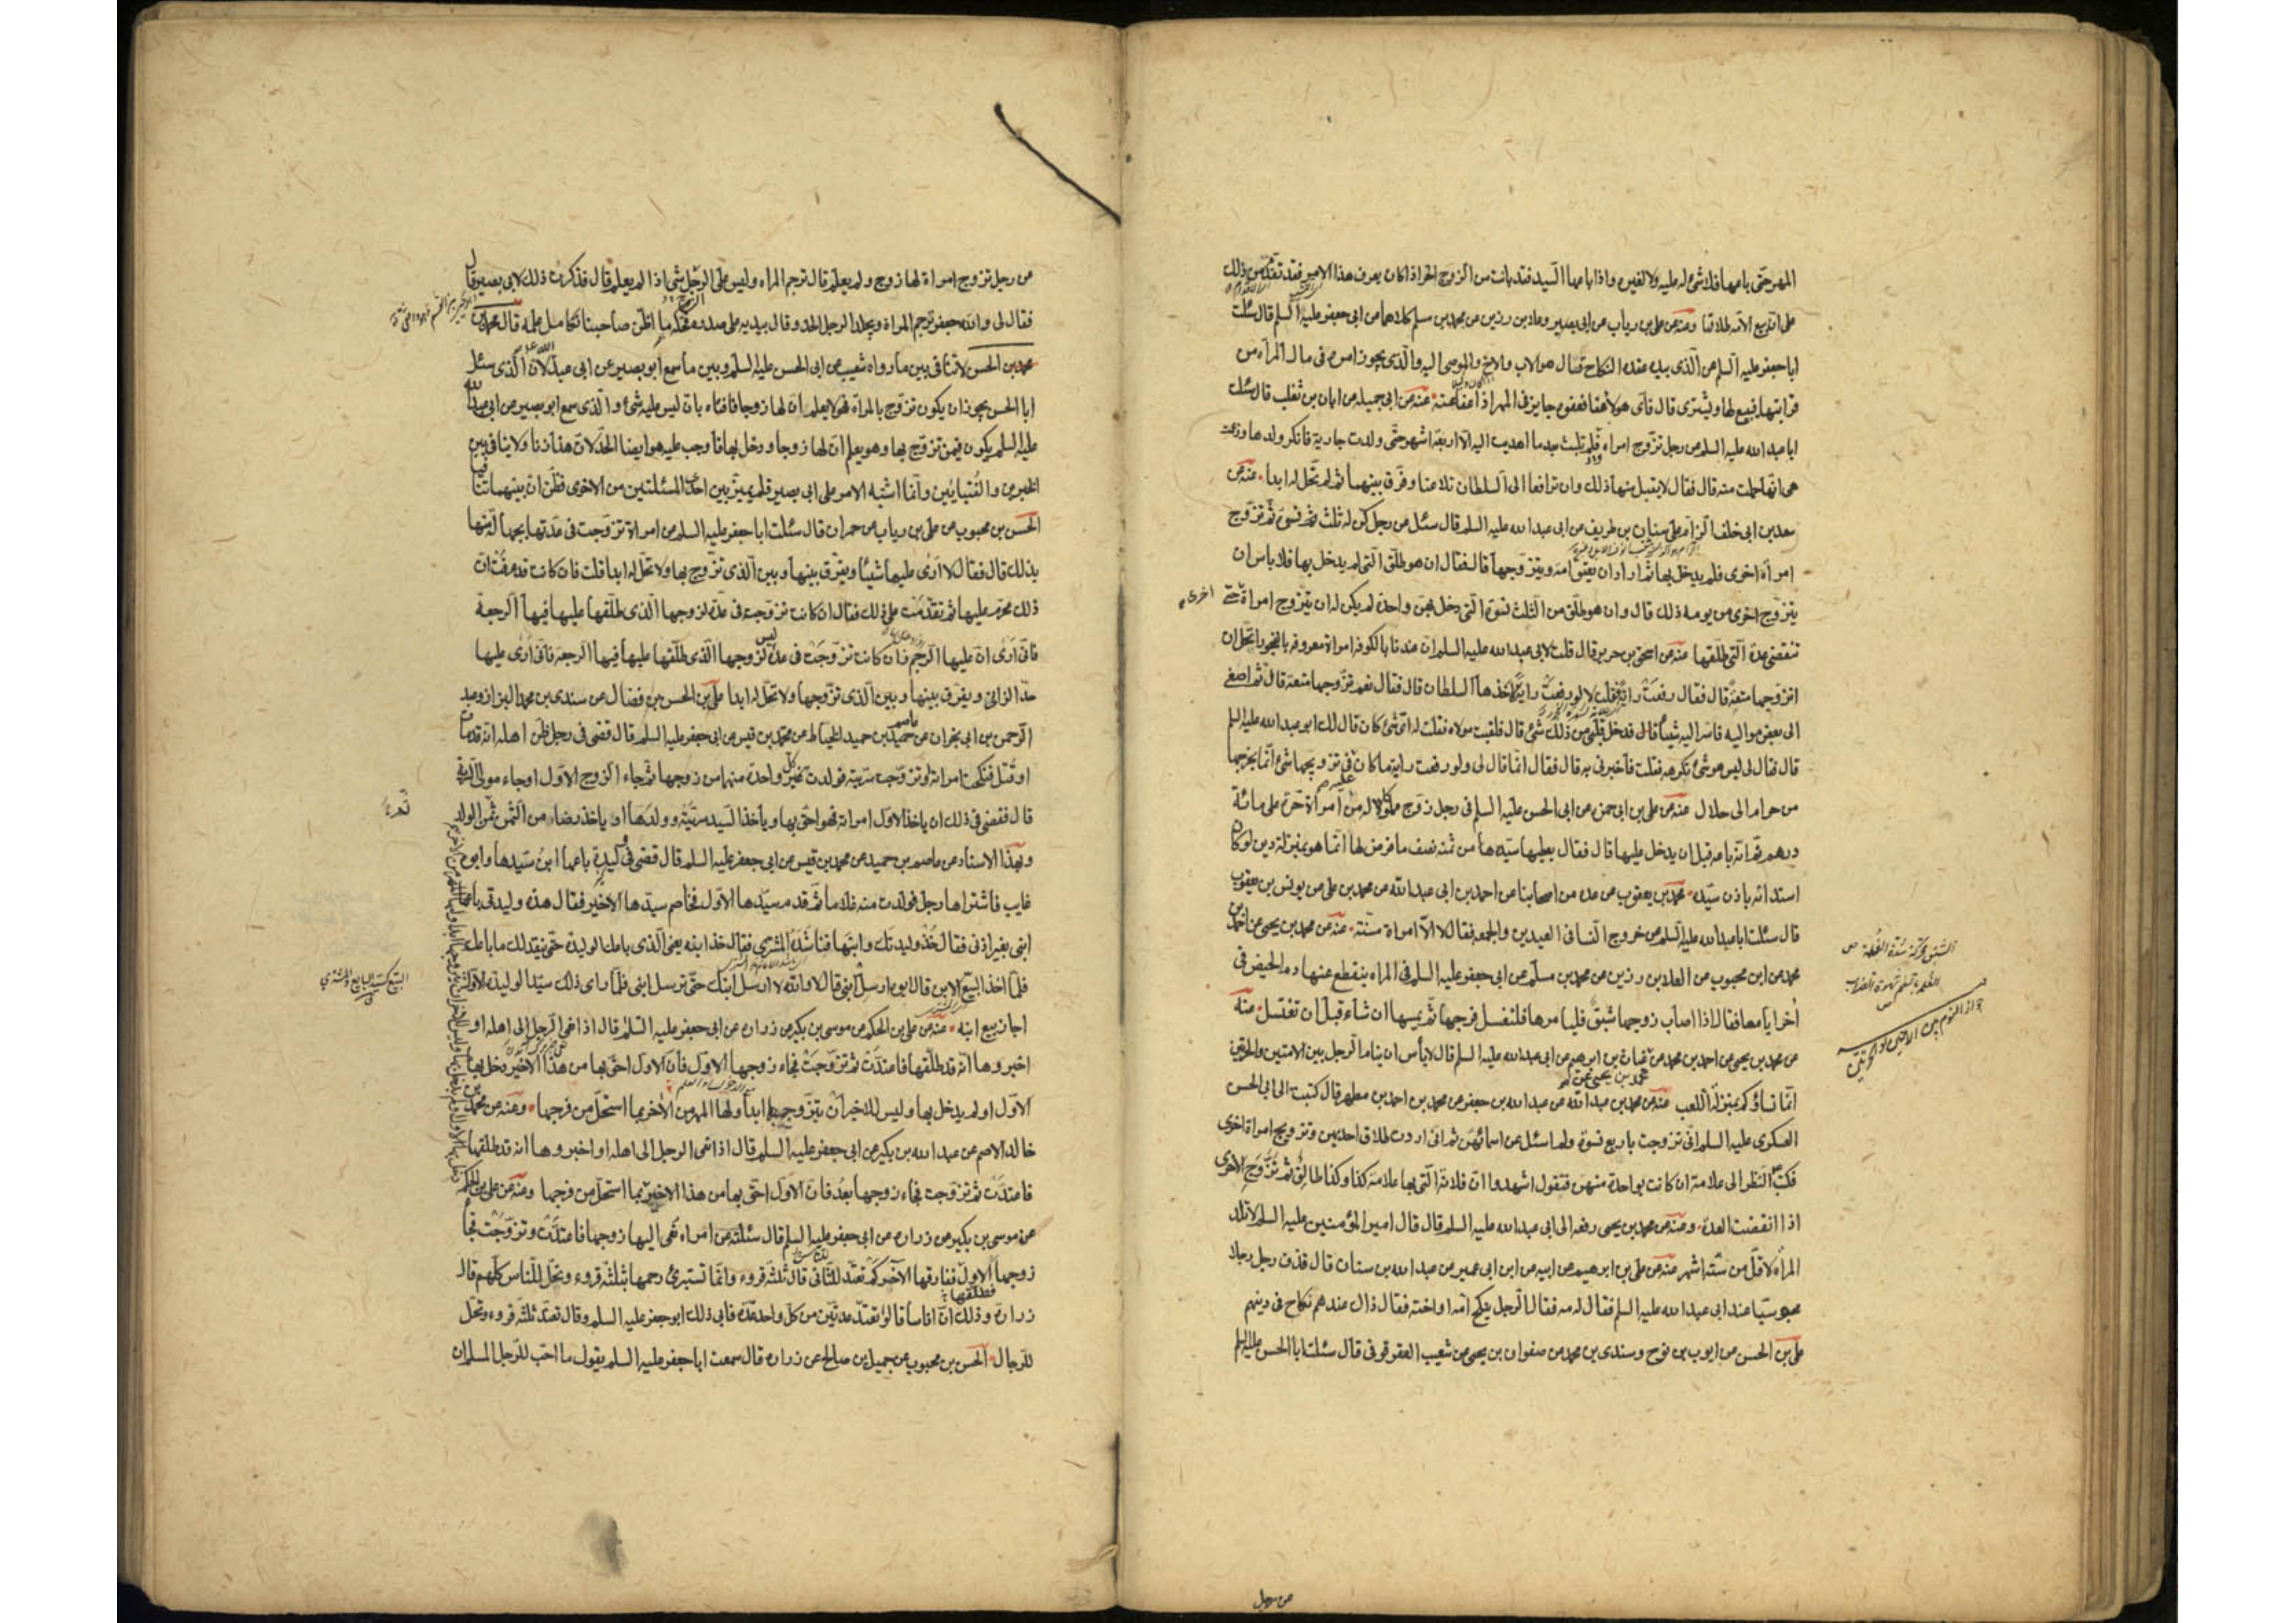 المهر حتى باعها فلا شئ له عليه ولا لغيره واذا باعها السيد فقد بانت من الزوج الحر اذا كان يعرف هذا الامر فقد تقدم من ذلك
على ان بيع الامة طلاقها وعنه عن على بن رياب عن ابى بصير وعلا بن رزين عن محمد بن مسلم كلاهما عن ابى جعفر عليه السلم قال سئلت
ابا جعفر عليه السلم عن الذى بيده عقدة النكاح فقال هو الاب والاخ والموصى اليه والذى يجوز امره فى مال المراة من
قرابتها فيبيع لها ويشترى قال فاى هؤلاء عفا فعفوه جايز فى المهر اذا عفا عنه عنه عن ابى جميله عن ابان بن تغلب قال سئلت
ابا عبد الله عليه السلم عن رجل تزوج امراة فلم تلبث بعد ما اهديت اليه الا اربعة اشهر حتى ولدت جارية فانكر ولدها وزعمت
هى انها حملت منه قال فقال لا يقبل منها ذلك وان ترافعا الى السلطان تلاعنا وفرق بينهما ثم لم تحل له ابدا عنه عن
سعد بن ابى خلف الزام على سنان بن طريف عن ابى عبد الله عليه السلم قال سئل عن رجل كن له ثلث نسوة ثم تزوج
امراة اخرى فلم يدخل بها ثم اراد ان يعتق امة ويتزوجها قال فقال ان هو طلق التى لم يدخل بها فلا باس ان
يتزوج اخرى من يومه ذلك قال وان هو طلق من الثلث نسوة التى دخل بهن واحدة لم يكن له ان يتزوج امراة حتى
اخرى
تنقضى عدة التى طلقها عنه عن اسحق بن حرير قال قلت لابى عبد الله عليه السلم ان عندنا بالكوفة امراة معروفه بالفجور ايحل ان
اتزوجها متعة قال فقال رفعت راية قلت لا لو رفعت راية اخذها السلطان قال فقال نعم تزوجها متعة قال ثم اصغى
الى بعض مواليه فاسر اليه شيئا قال فدخل قلبى من ذلك شئ قال فلقيت مولاه فقلت له اى شئ كان قال لك ابو عبد الله عليه السلم
قال فقال لى ليس هو شئ تكرهه فقلت فاخبرنى به قال فقال انما قال لى ولو رفعت راية ما كان عليه فى تزويجها شئ انما يخرجها
من حرام الى حلال عنه عن على بن ابى حمزة عن ابى الحسن عليه السلم فى رجل زوج مملوكا له من امراة حرة على مائة
درهم ثم انه باعه قبل ان يدخل عليها قال فقال يعطيها سيده من ثمنه نصف ما فرض لها انما هو بمنزلة دين لو كان
استدانه باذن سيده محمد بن يعقوب عن عده من اصحابنا عن احمد بن ابى عبد الله عن محمد بن على عن يونس بن يعقوب
قال سئلت ابا عبد الله عليه السلم عن خروج النسا فى العيدين والجمعه فقال لا الا امراة مسنة عنه عن محمد بن يحيى عن احمد بن
محمد عن ابن محبوب عن العلا بن رزين عن محمد بن مسلم عن ابى جعفر عليه السلم فى المراة ينقطع عنها دم الحيض فى
اخر ايامها فقال اذا اصاب زوجها شبق فليامرها فلتغسل فرجها ثم يمسها ان شاء قبل ان تغتسل عنه
عن محمد بن يحيى عن احمد بن محمد عن غياث بن ابرهيم عن ابى عبد الله عليه السلم قال لا باس ان ينام الرجل بين الامتين والحرتين
محمد بن يحيى عن
انما نساؤكم بمنزلة اللعب عنه عن محمد بن عبد الله عن عبد الله بن جعفر عن محمد بن احمد بن مطهر قال كتبت الى ابى الحسن
العسكرى عليه السلم انى تزوجت باربع نسوة ولم اسئل عن اسمائهن ثم انى اردت طلاق احديهن وتزويج امراة اخرى
فكتب انظر الى علامة ان كانت بواحدة منهن فتقول اشهدوا ان فلانة التى بها علامة كذا وكذا طالق ثم تزوج الاخرى
اذا انقضت العدة وعنه عن محمد بن يحيى رفعه الى ابى عبد الله عليه السلم قال قال امير المؤمنين عليه السلم لا تلد
المراة لاقل من ستة اشهر عنه عن على بن ابرهيم عن ابيه عن ابن ابى عمير عن عبد الله بن سنان قال قذف رجل رجلا
مجوسيا عند ابى عبد الله عليه السلم فقال له مه فقال الرجل ينكح امه او اخته فقال ذاك عندهم نكاح فى دينهم
على بن الحسن عن ايوب بن نوح وسندى بن محمد عن صفوان بن يحيى عن شعيب العقرقوفى قال سئلت ابا الحسن عليه السلم
الشبق محركة شدة الغلمة ص
جواز النوم بين الامتين او الحرتين
عن رجل
عن رجل تزوج امراة لها زوج ولم يعلم قال ترجم المراة وليس على الرجل شئ اذا لم يعلم قال فذكرت ذلك لابى بصير قال
فقال لى والله جعفر ترجم المراة ويجلد الرجل الحد وقال بيده على صدره يحكه ما اظن صاحبنا تكامل علمه قال محمد بن
الحسن لا تنافى بين ما رواه شعيب عن ابى الحسن عليه السلم وبين ما سمع ابو بصير عن ابى عبد الله لان الذى سئل
ابا الحسن يجوز ان يكون تزوج بالمراة هو لا يعلم ان لها زوجا فافتاه بان ليس عليه شئ والذى سمع ابو بصير من ابى عبد الله
عليه السلم يكون فيمن تزوج بها وهو يعلم ان لها زوجا ودخل بها فاوجب عليه هو ايضا الحد لان هذا زنا ولا ينافى بين
الخبرين والفتيايين وانما اشتبه الامر على ابى بصير فلم يميز بين احد المسئلتين من الاخرى فظن ان بينهما تنافيا
الحسن بن محبوب عن على بن رياب عن حمران قال سئلت ابا جعفر عليه السلم عن امراة تزوجت فى عدتها بجهالة منها
بذلك قال فقال لا ارى عليها شيئا ويفرق بينها وبين الذى تزوج بها ولا تحل له ابدا قلت فان كانت قد عرفت ان
ذلك محرم عليها ثم تقدمت على ذلك فقال ان كانت تزوجت فى عدة لزوجها الذى طلقها عليها فيها الرجعة
فانى ارى ان عليها الرجم فان كانت تزوجت فى عدة ليس لزوجها الذى طلقها عليها فيها الرجعة فانى ارى عليها
حد الزانى ويفرق بينها وبين الذى تزوجها ولا تحل له ابدا على بن الحسن بن فضال عن سندى بن محمد البزاز وعبد
الرحمن بن ابى نجران عن عاصم بن حميد الخياط عن محمد بن قيس عن ابى جعفر عليه السلم قال قضى فى رجل ظن اهله انه قد مات
او قتل فنكحت امراته او تزوجت سريته فولدت كل واحدة منهما من زوجها ثم جاء الزوج الاول او جاء مولى السرية
قال فقضى فى ذلك ان ياخذ الاول امراته فهو احق بها وياخذ السيد سريته وولدها او ياخذ رضاه من الثمن ثمن الولد
وبهذا الاسناد عن عاصم بن حميد عن محمد بن قيس عن ابى جعفر عليه السلم قال قضى فى وليدة باعها ابن سيدها وابوه
غايب فاشتراها رجل فولدت منه غلاما ثم قدم سيدها الاول فخاصم سيدها الاخير فقال هذه وليدتى باعها
ابنى بغير اذنى فقال خذ وليدتك وابنها فناشده المشترى فقال خذ ابنه يعنى الذى باعك الوليدة حتى ينقد لك ما باعك
فلما اخذ البيع الابن قال ابوه ارسل ابنى قال لا والله لا ارسل ابنك حتى ترسل ابنى فلما راى ذلك سيد الوليدة الاول
البيع كسيد البايع والمشترى
اجاز بيع ابنه عنه عن على بن الحكم عن موسى بن بكير عن زرارة عن ابى جعفر عليه السلم قال اذا نعى الرجل الى اهله او
اخبروها انه قد طلقها فاعتدت ثم تزوجت فجاء زوجها الاول فان الاول احق بها من هذا الاخير دخل بها
الاول او لم يدخل بها وليس للاخير ان يتزوجها ابدا ولها المهر من الاخر بما استحل من فرجها وعنه عن محمد بن
خالد الاصم عن عبد الله بن بكير عن ابى جعفر عليه السلم قال اذا نعى الرجل الى اهله او اخبروها انه قد طلقها
فاعتدت ثم تزوجت فجاء زوجها بعد فان الاول احق بها من هذا الاخير بما استحل من فرجها وعنه عن على بن الحكم
عن موسى بن بكير عن زرارة عن ابى جعفر عليه السلم قال سئلته عن امراة نعى اليها زوجها فاعتدت وتزوجت فجا
زوجها الاول ففارقها الاخر كم تعتد للثانى قال ثلثة قروء وانما تستبرئ رحمها بثلثة قروء وتحل للناس كلهم قال
فطلقها
زرارة وذلك ان اناسا قالوا تعتد عدتين من كل واحد عدة فابى ذلك ابو جعفر عليه السلم وقال تعتد ثلثة قروء وتحل
للرجال الحسن بن محبوب عن جميل بن صالح عن زرارة قال سمعت ابا جعفر عليه السلم يقول ما احب للرجل المسلم ان